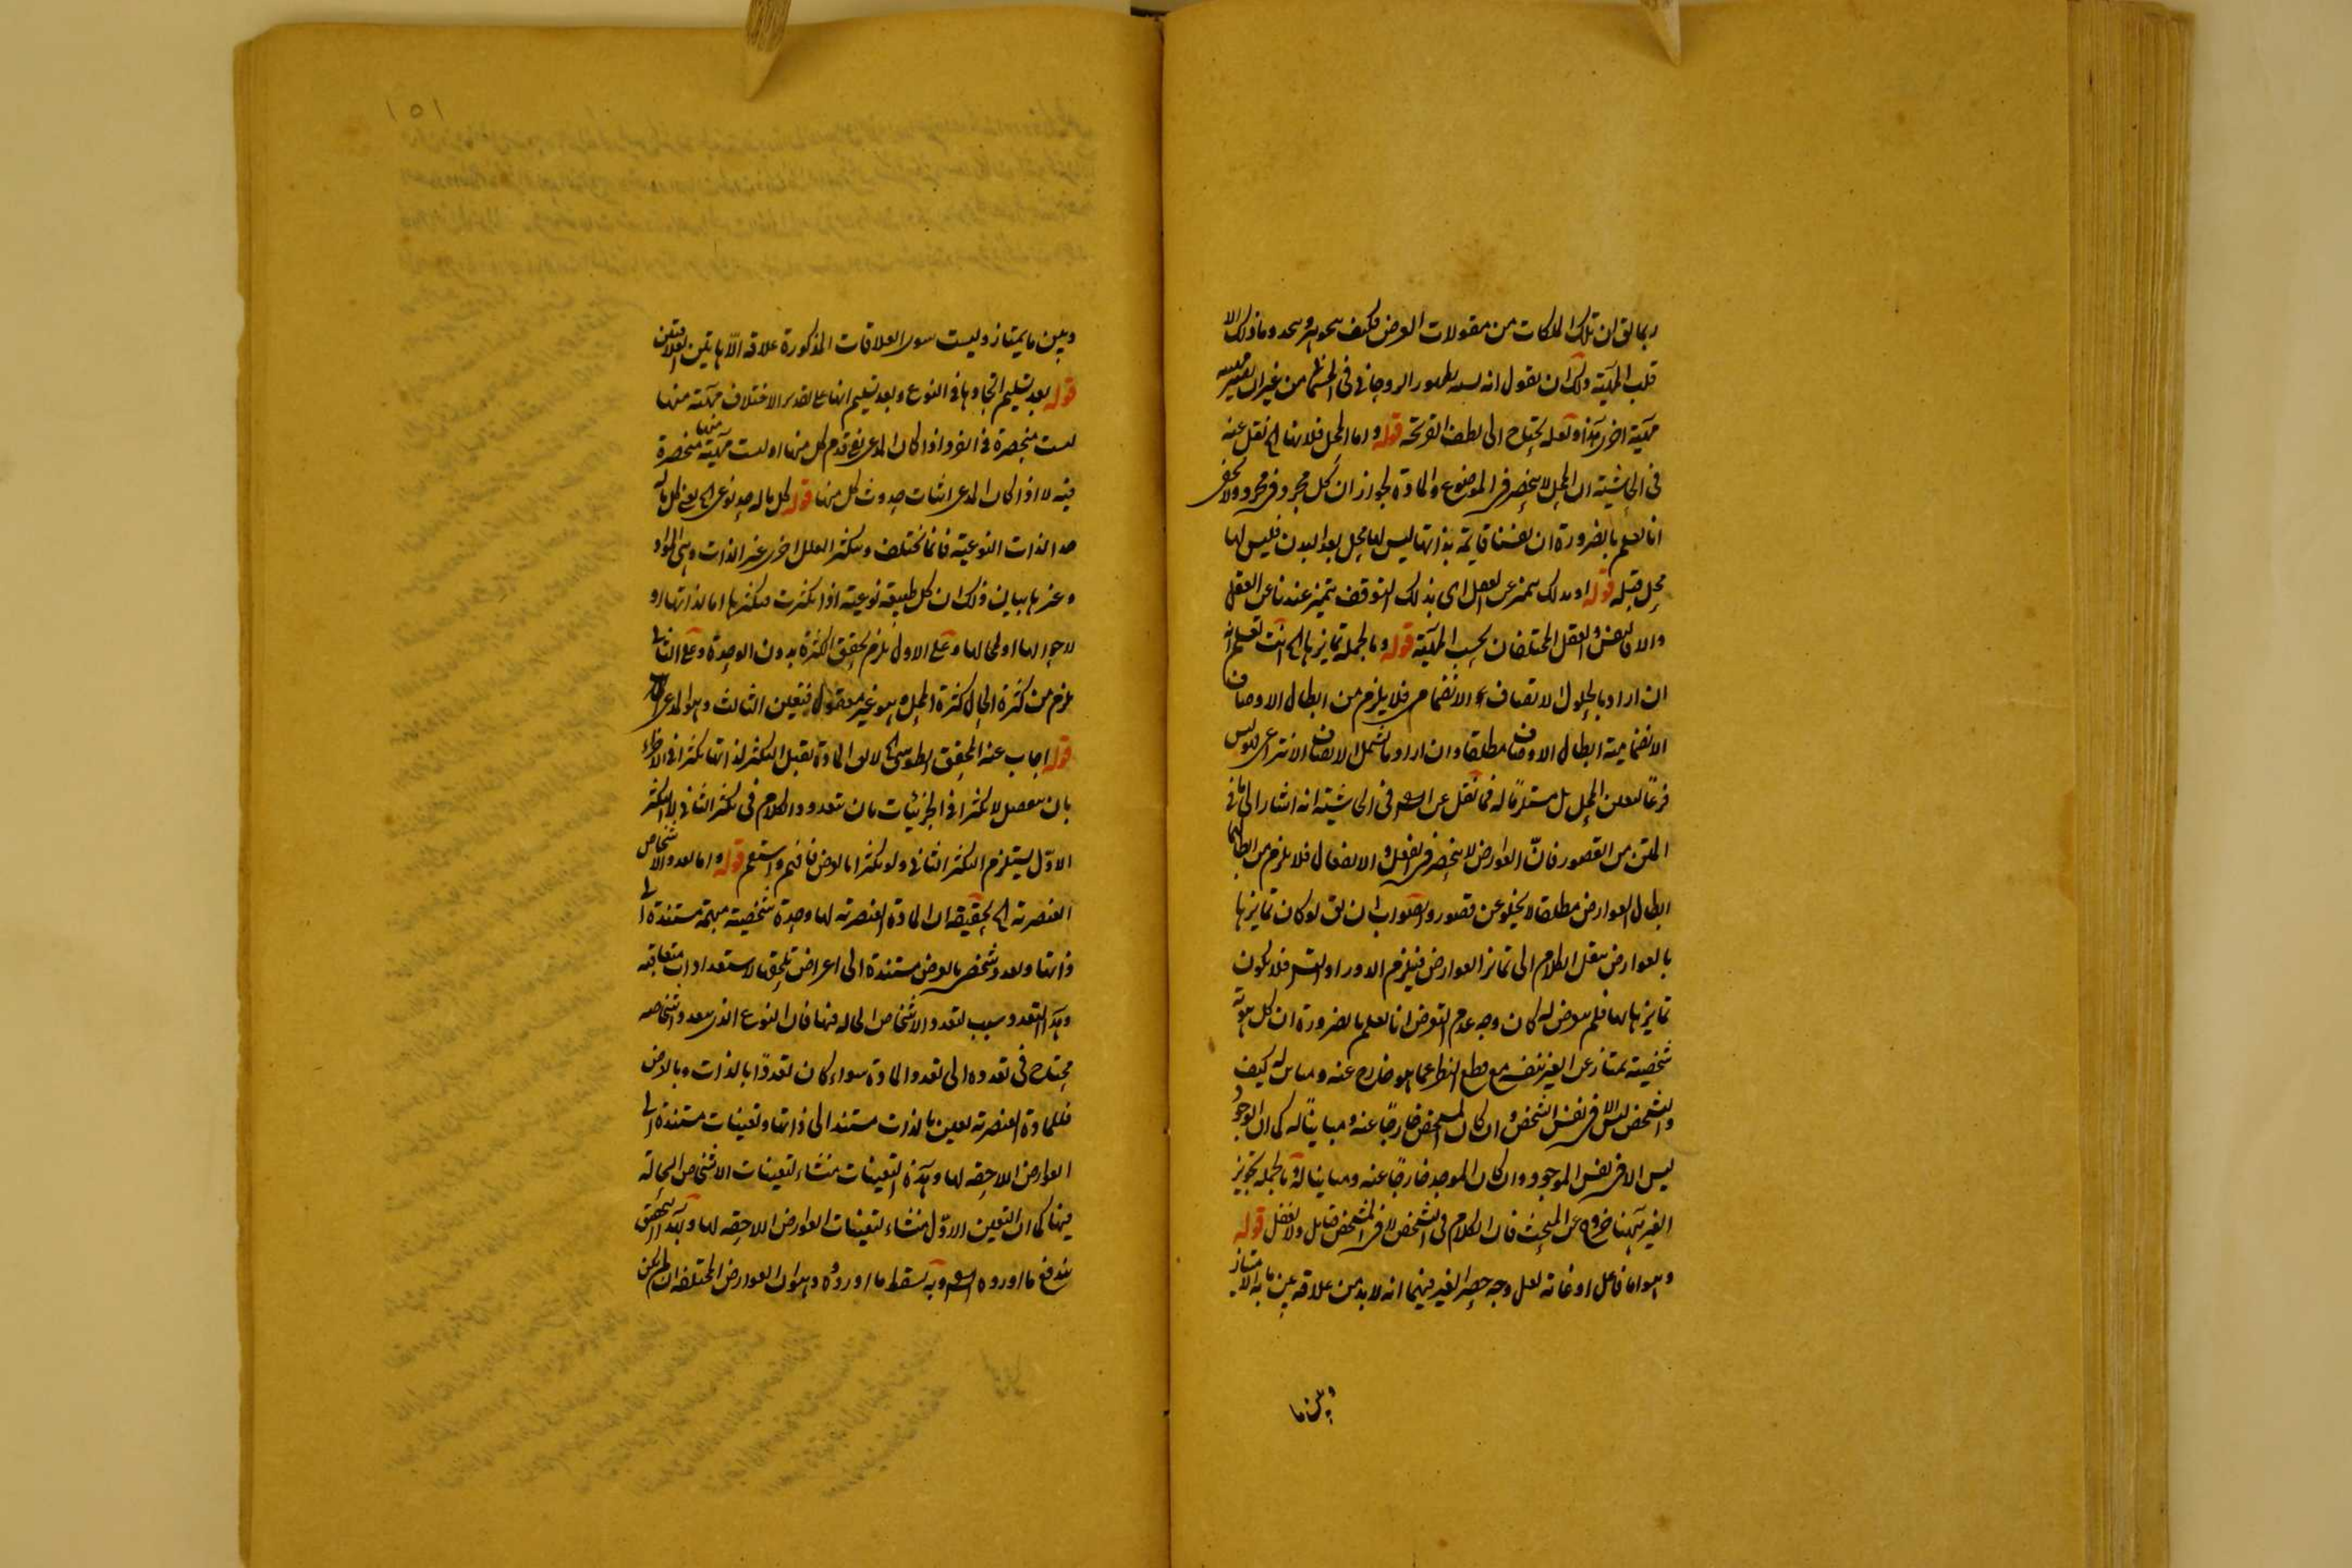 ربما يق ان تلك الملكات من مقولات العرض فكيف يتجوهر ويتحد وما ذلك الا
قلب المهية ولك ان تقول انه لسه بظهور الروحاني في من غير ان يصير مهيته
مهية اخرى هذا ولعله يحتاج الى لطف القريحة قوله واما المحل فلانها الخ نقل عنه
في الحاشية ان المحل لا ينحصر في الموضوع والمادة لجواز ان يحل مجرد في مجرد ولا يخفى
انا نعلم بالضرورة ان نفسنا قائمة بذاتها ليس لها محل بعد البدن فليس لها
محل قبله قوله او بذلك يتميز عن العقل اى بذلك التوقف يتميز عندنا عن العقل
والا فالنفس والعقل المختلفان بحسب المهية قوله وبالجملة تمايزها الخ انت تعلم انه
ان اراد بالحلول الاتصاف الانضمامي فلا يلزم من ابطال الاوصاف
الانضمامية ابطال الاوصاف مطلقا وان اراد ما يشمل الاتصاف الانتزاعي فليس
فرعا لتعين المحل بل مستلزما له فما نقل عن الش في الحاشية انه اشار الى ما في
المتن من القصور فان العوارض لا ينحصر في الفعل والانفعال فلا يلزم من ابطالهما
ابطال العوارض مطلقا لا يخلو عن قصور والصواب ان يق لو كان تمايزها
بالعوارض ينقل الكلام الى تمايز العوارض فيلزم الدور او التس فلا يكون
تمايزها بها فلم يتعرض له كان وجه عدم التعرض انا نعلم بالضرورة ان كل هوية
شخصية يمتاز عن الغير بنفسه مع قطع النظر عما هو خارج عنه ومباين له كيف
والتشخص ليس الا في نفس الشخص وان كان المشخص خارجا عنه ومباينا له كما ان الوجود
ليس الا في نفس الموجود وان كان الموجد خارجا عنه ومباينا له وبالجملة تجويز
الغير ههنا خروج عن المبحث فان الكلام في التشخص لا في المشخص فتامل ولا تغفل قوله
وهو اما فاعل او غاية لعل وجه حصر الغير فيهما انه لا بد من علاقة بين ما به الامتياز
وبين ما
١٥١
وبين ما يمتاز وليست سوى العلاقات المذكورة علاقة الا هاتين العلاقتين
قوله بعد تسليم اتحادها في النوع وبعد تسليم انها على تقدير الاختلاف مهية منها
ليست منحصرة في الفرد اذا كان المدعى نفي قدم كل منها او ليست مهية منها منحصرة
فيه لا اذا كان المدعى اثبات حدوث كل منها قوله كل ما له حد نوعى الخ يعنى كل ما له
حد الذات النوعية فانما يختلف ويتكثر العلل اخرى غير الذات وهى المواد
وغيرها بيان ذلك ان كل طبيعة نوعية اذا تكثرت فتكثرها اما لذاتها او
لاحوالها او لمحالها وعلى الاول يلزم تحقق الكثرة بدون الوحدة وعلى الثانى
يلزم من كثرة الحال كثرة المحل وهو غير معقول فتعين الثالث وهو المدعى
قوله اجاب عنه المحقق الطوسى الخ لان المادة تقبل التكثر لذاتها تكثرا في الاجزاء
بان ينفصل لا تكثرا في الجزئيات بان يتعدد والكلام في تكثر الثاني لا التكثر
الاول يستلزم التكثر الثاني ولو تكثرا بالعرض فافهم واستقم قوله واما تعدد الاشخاص
العنصرية الخ تحقيقه ان المادة العنصرية لها وحدة شخصية مبهمة مستندة الى
ذاتها وتعدد شخصى بالعرض مستندة الى اعراض تلحق بالاستعدادات متعاقبة
وهذا التعدد سبب لتعدد الاشخاص الحاله فيها فان النوع الذى يتعدد اشخاصه
محتاج في تعدده الى تعدد المادة سواء كان تعددا بالذات وبالعرض
فللمادة العنصرية تعين بالذات مستند الى ذاتها وتعينات مستندة الى
العوارض اللاحقة لها وهذه التعينات منشاء لتعينات الاشخاص الحالة
فيها كما ان التعين الاول منشاء لتعينات العوارض اللاحقة لها وبهذا التحقيق
يندفع ما اورده الش وبه يسقط ما اوردوه وهو ان العوارض المختلفة ان لم يكن